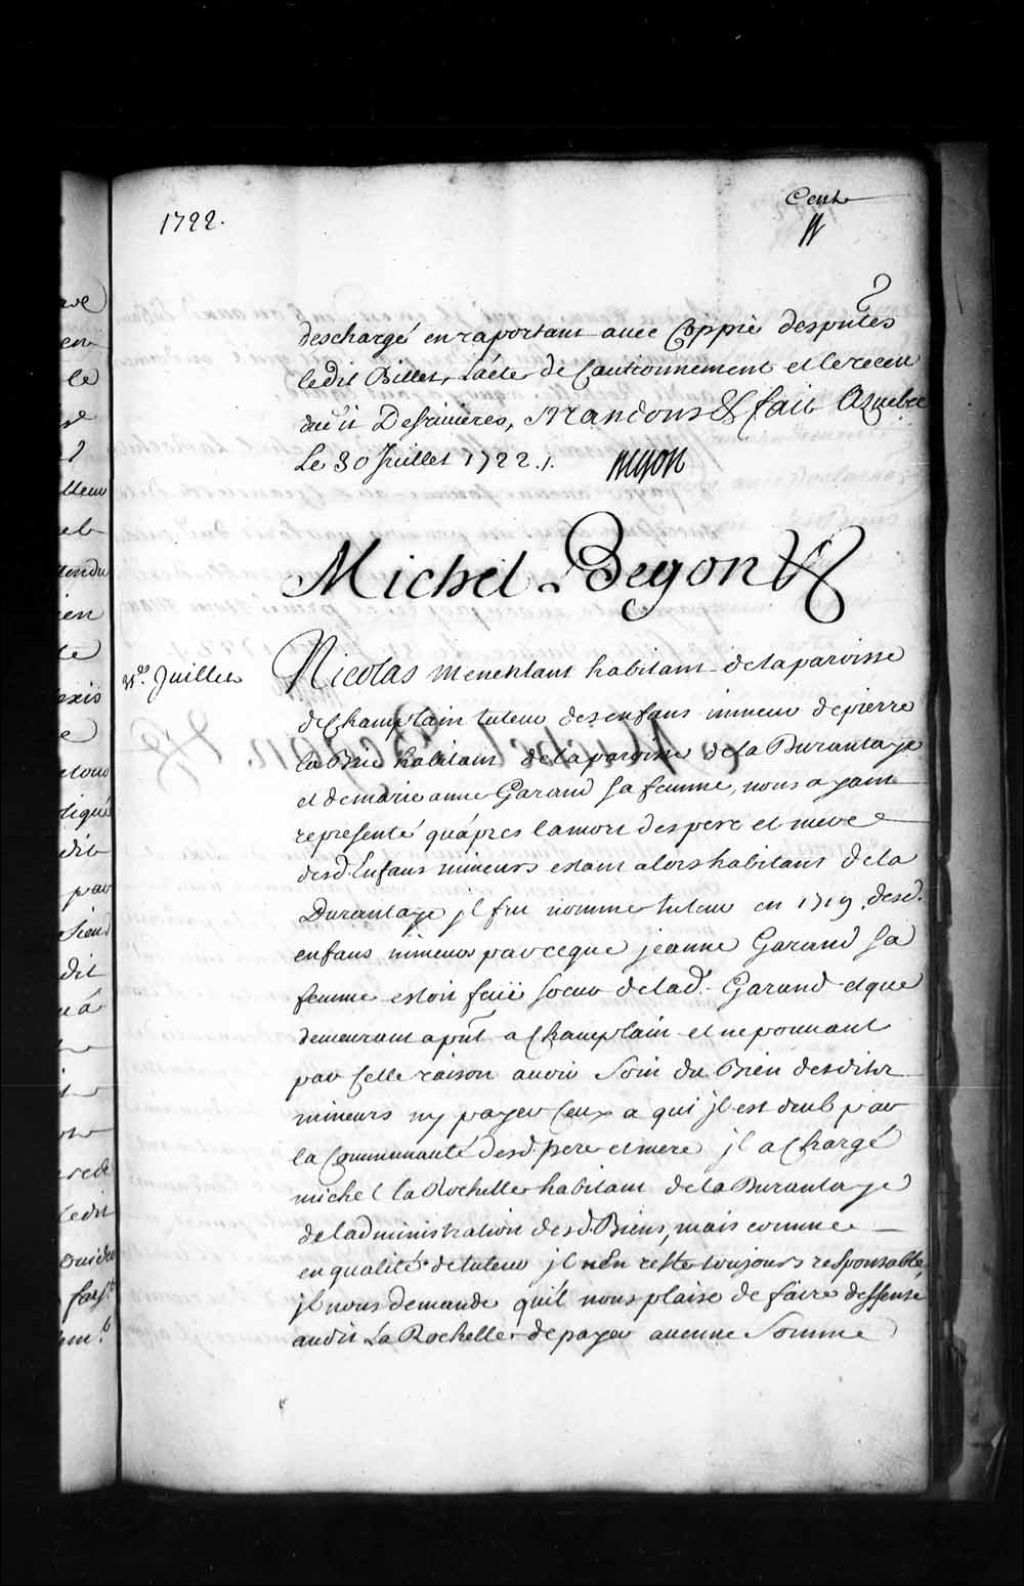 1722.
Cent
deschargé en raportant avec Coppie desputes
ledit Billet, L'acte de Cautionnement et le receu
dud it Desruiieres, Mandons & fait A quebec
Le 30 Juillet 1722 ./. Begon
Michel Begon
31.e Juillet
Nicolas menentaut habitant de la paroisse
de Champlain tuteur des enfans mineur de pierre
la Brie habitant de la paroisse de la Durantaye
et de marie anne Garand sa femme, nous ayant
representé qu'apres la mort des pere et mere
desd. Enfans mineurs estant alors habitant de la
Durantaye jl fut nommé tuteur en 1719. desd.
enfans mineurs parceque jeanne Garand sa
femme estoit soeur de lad. Garand et que
demeurant a pnt a Champlain et ne pouuant
par Cette raison auoir Soin du Bien desdits
mineurs ny payer Ceux a qui jl est deub par
la Communauté desd. pere et mere jl a Chargé
michel la Rochelle habitant de la Durantaye
de ladministration desd. Biens, mais comme
en qualité de tuteur jl en reste toujours responsable,
jl nous demande qu'il nous plaise de faire deffense
audit La Rochelle de payer aucune Somme